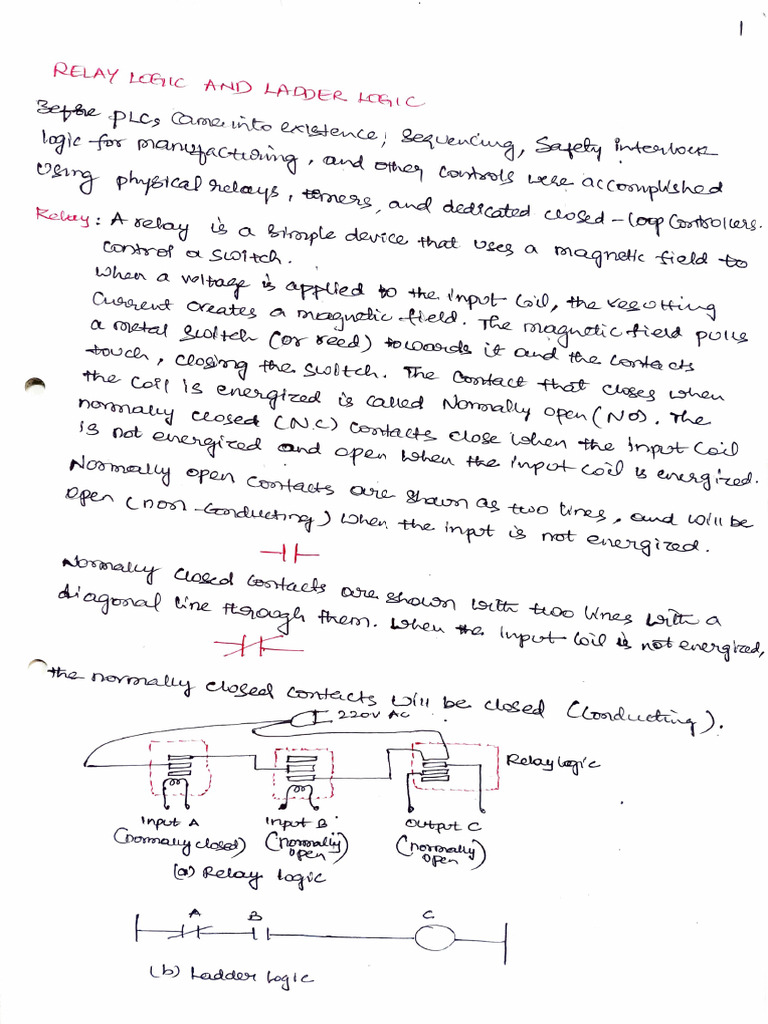 1
RELAY LOGIC AND LADDER LOGIC
Before PLCs came into existence, sequencing, safety interlock
logic for manufacturing, and other controls were accomplished
using physical relays, timers, and dedicated closed-loop controllers.
Relay: A relay is a simple device that uses a magnetic field to
control a switch.
When a voltage is applied to the input coil, the resulting
current creates a magnetic field. The magnetic field pulls
a metal switch (or reed) towards it and the contacts
touch, closing the switch. The contact that closes when
the coil is energized is called Normally open (NO). The
normally closed (N.C) contacts close when the input coil
is not energized and open when the input coil is energized.
Normally open contacts are shown as two lines, and will be
open (non-conducting) when the input is not energized.
Normally closed contacts are shown with two lines with a
diagonal line through them. When the input coil is not energized,
the normally closed contacts will be closed (conducting).
220V AC
Relay logic
Input A Input B Output C
(normally closed) (normally open) (normally open)
(a) Relay logic
A B C
(b) Ladder logic